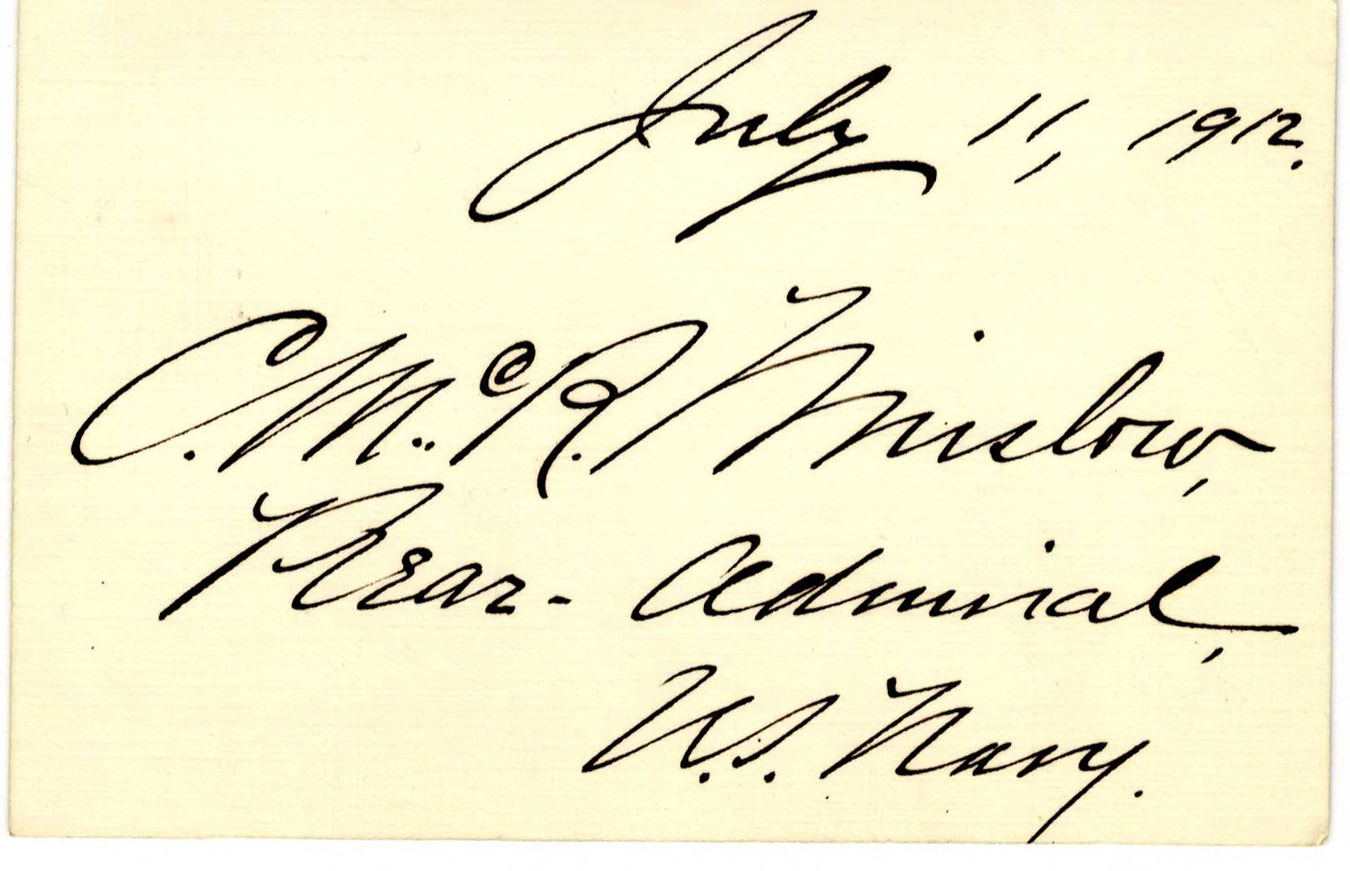 July 11, 1912.
C. McR. Winslow,
Rear-Admiral,
U.S. Navy.